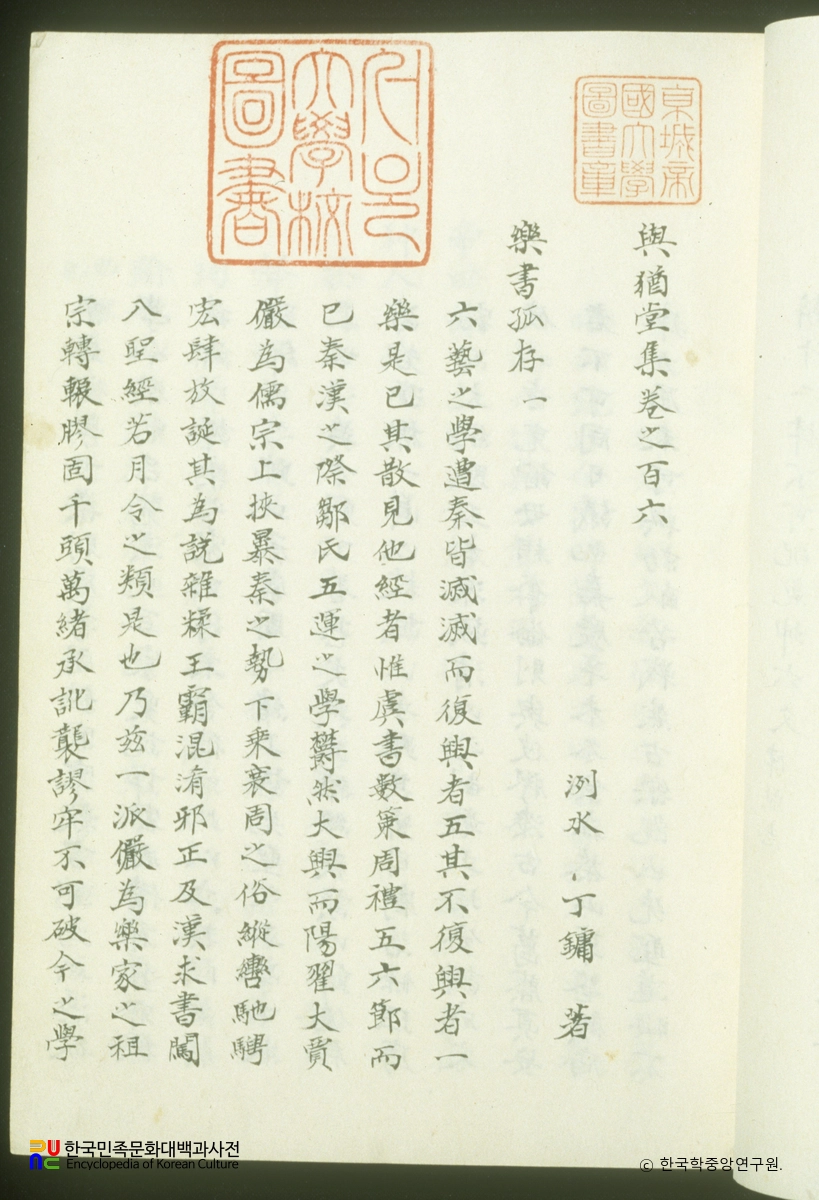 與猶堂集卷之百六
洌水 丁鏞 著
樂書孤存一
六藝之學遭秦皆滅滅而復興者五其不復興者一
樂是已其散見他經者惟虞書數策周禮五六節而
已秦漢之際鄒氏五運之學欝然大興而陽翟大賈
儼為儒宗上挾暴秦之勢下乘衰周之俗縱轡馳騁
宏肆放誕其為說雜糅王霸混淆邪正及漢求書闖
入聖經若月令之類是也乃玆一派儼為樂家之祖
宗轉輾膠固千頭萬緖承訛襲謬牢不可破今之學
京城帝
國大學
圖書章
大學校
圖書
한국민족문화대백과사전
Encyclopedia of Korean Culture
© 한국학중앙연구원.